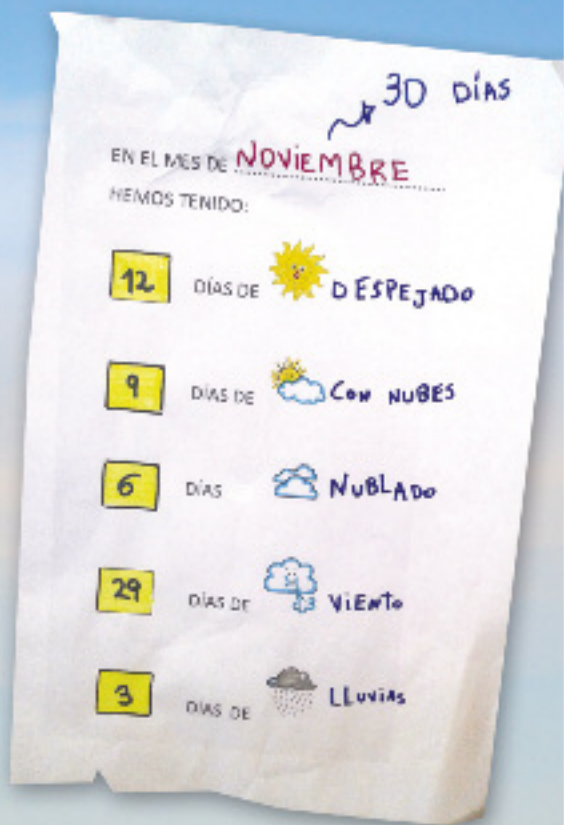 30 DÍAS
EN EL MES DE NOVIEMBRE
HEMOS TENIDO:
12 DÍAS DE DESPEJADO
9 DÍAS DE CON NUBES
6 DÍAS NUBLADO
29 DÍAS DE VIENTO
3 DÍAS DE LLUVIAS